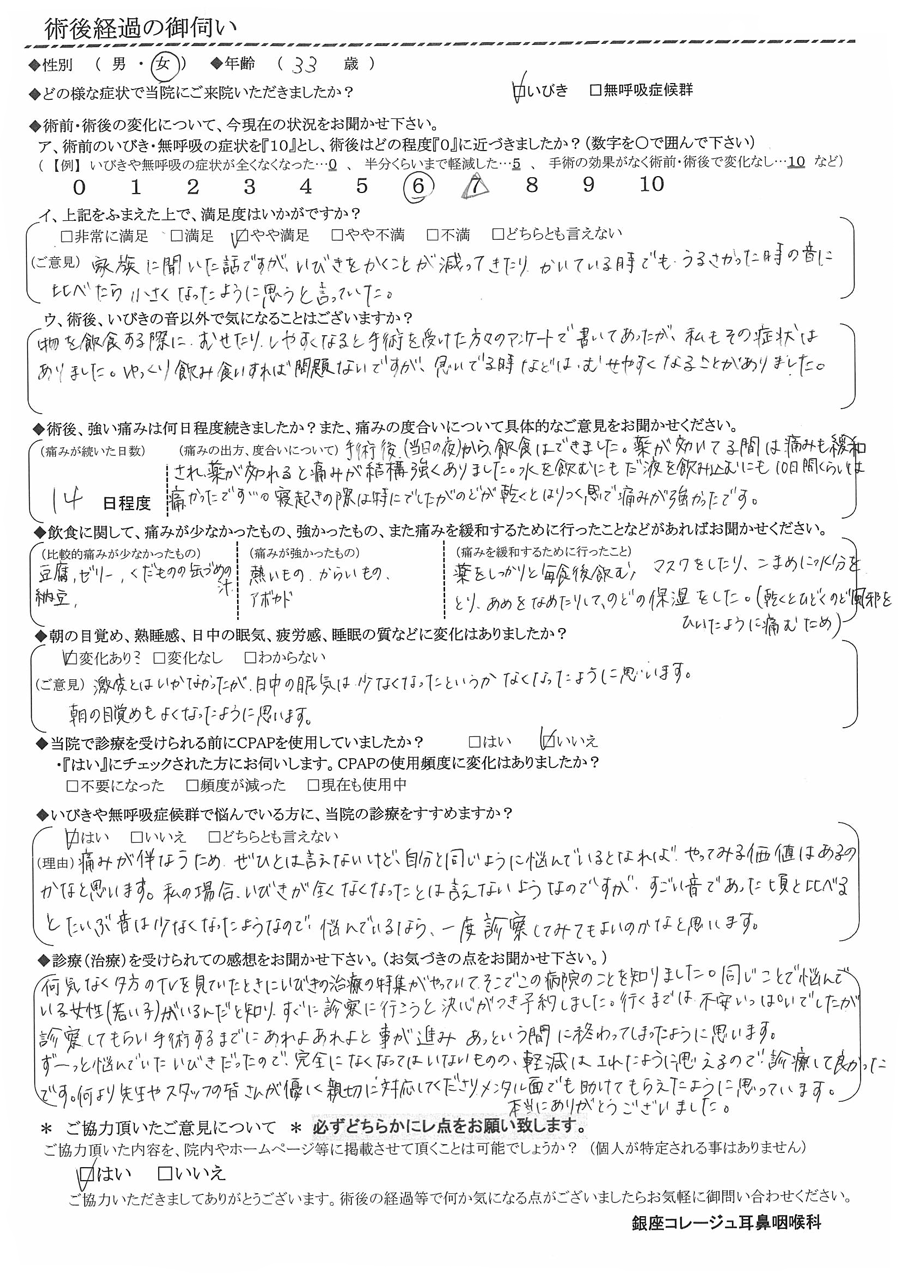 術後経過の御伺い
◆性別 ( 男 ・ 女 ) ◆年齢 ( 33 歳 )
◆どの様な症状で当院にご来院いただきましたか? ☑いびき □無呼吸症候群
◆術前・術後の変化について、今現在の状況をお聞かせ下さい。
ア、術前のいびき・無呼吸の症状を『10』とし、術後はどの程度『0』に近づきましたか?(数字を〇で囲んで下さい)
(【例】いびきや無呼吸の症状が全くなくなった…0 、 半分くらいまで軽減した…5 、 手術の効果がなく術前・術後で変化なし…10 など)
0 1 2 3 4 5 6 7 8 9 10
イ、上記をふまえた上で、満足度はいかがですか?
□非常に満足 □満足 ☑やや満足 □やや不満 □不満 □どちらとも言えない
(ご意見) 家族に聞いた話ですが、いびきをかくことが減ってきたり、かいている時でも、うるさかった時の音に
比べたら小さくなったように思うと言っていた。
ウ、術後、いびきの音以外で気になることはございますか?
物を飲食する際に、むせたりしやすくなると手術を受けた方々のアンケートで書いてあったが、私もその症状は
ありました。ゆっくり飲み食いすれば問題ないですが、急いでる時などは、むせやすくなることがありました。
◆術後、強い痛みは何日程度続きましたか?また、痛みの度合いについて具体的なご意見をお聞かせください。
(痛みが続いた日数) (痛みの出方、度合いについて) 手術後、(当日の夜)から、飲食はできました。薬が効いてる間は痛みも緩和
され、薬が切れると痛みが結構強くありました。水を飲むにもだ液を飲み込むにも10日間くらいは
14 日程度 痛かったです…。寝起きの際は特にでしたがのどが乾くとはりつく感じで痛みが強かったです。
◆飲食に関して、痛みが少なかったもの、強かったもの、また痛みを緩和するために行ったことなどがあればお聞かせください。
(比較的痛みが少なかったもの) (痛みが強かったもの) (痛みを緩和するために行ったこと)
豆腐、ゼリー、くだものの缶づめの汁 熱いもの、からいもの、 薬をしっかりと毎食後飲む、マスクをしたり、こまめに水分を
納豆、 アボカド とり、あめをなめたりして、のどの保湿をした。(乾くとひどくのど風邪を
ひいたように痛むため)
◆朝の目覚め、熟睡感、日中の眠気、疲労感、睡眠の質などに変化はありましたか?
☑変化あり? □変化なし □わからない
(ご意見) 激変とはいかなかったが、日中の眠気は少なくなったというか なくなったように思います。
朝の目覚めもよくなったように思います。
◆当院で診療を受けられる前にCPAPを使用していましたか? □はい ☑いいえ
・『はい』にチェックされた方にお伺いします。CPAPの使用頻度に変化はありましたか?
□不要になった □頻度が減った □現在も使用中
◆いびきや無呼吸症候群で悩んでいる方に、当院の診療をすすめますか?
☑はい □いいえ □どちらとも言えない
(理由) 痛みが伴なうため、ぜひとは言えないけど、自分と同じように悩んでいるとなれば、やってみる価値はあるの
かなと思います。私の場合、いびきが全くなくなったとは言えないようなのですが、すごい音であった頃と比べる
とだいぶ音は少なくなったようなので、悩んでいるなら、一度診察してみてもよいのかなと思います。
◆診療(治療)を受けられての感想をお聞かせ下さい。(お気づきの点をお聞かせ下さい。)
何気なく夕方のTVを見ていたときにいびきの治療の特集がやっていて、そこでこの病院のことを知りました。同じことで悩んで
いる女性(若い子)がいるんだと知り、すぐに診察に行こうと決心がつき予約しました。行くまでは、不安いっぱいでしたが
診察してもらい手術するまでにあれよあれよと事が進み あっという間に終わってしまったように思います。
ず〜っと悩んでいたいびきだったので、完全になくなってはいないものの、軽減はされたように思えるので、診療して良かった
です。何より先生やスタッフの皆さんが優しく親切に対応してくださりメンタル面でも助けてもらえたように思っています。
本当にありがとうございました。
＊ ご協力頂いたご意見について ＊ 必ずどちらかにレ点をお願い致します。
ご協力頂いた内容を、院内やホームページ等に掲載させて頂くことは可能でしょうか? (個人が特定される事はありません)
☑はい □いいえ
ご協力いただきましてありがとうございます。術後の経過等で何か気になる点がございましたらお気軽に御問い合わせください。
銀座コレージュ耳鼻咽喉科